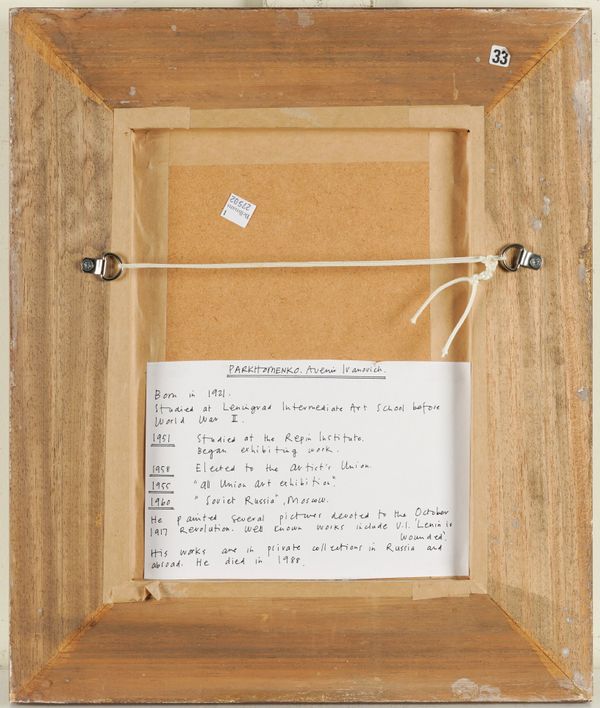 33
27502
PARKHOMENKO. Avenir Ivanovich.
Born in 1921.
Studied at Leningrad Intermediate Art School before
World War II.
1951 Studied at the Repin Institute.
Began exhibiting work.
1958 Elected to the Artist's Union.
1955 "All Union Art exhibition".
1960 "Soviet Russia", Moscow.
He painted several pictures devoted to the October
1917 Revolution. Well known works include V.I. 'Lenin is
Wounded'.
His works are in private collections in Russia and
abroad. He died in 1988.